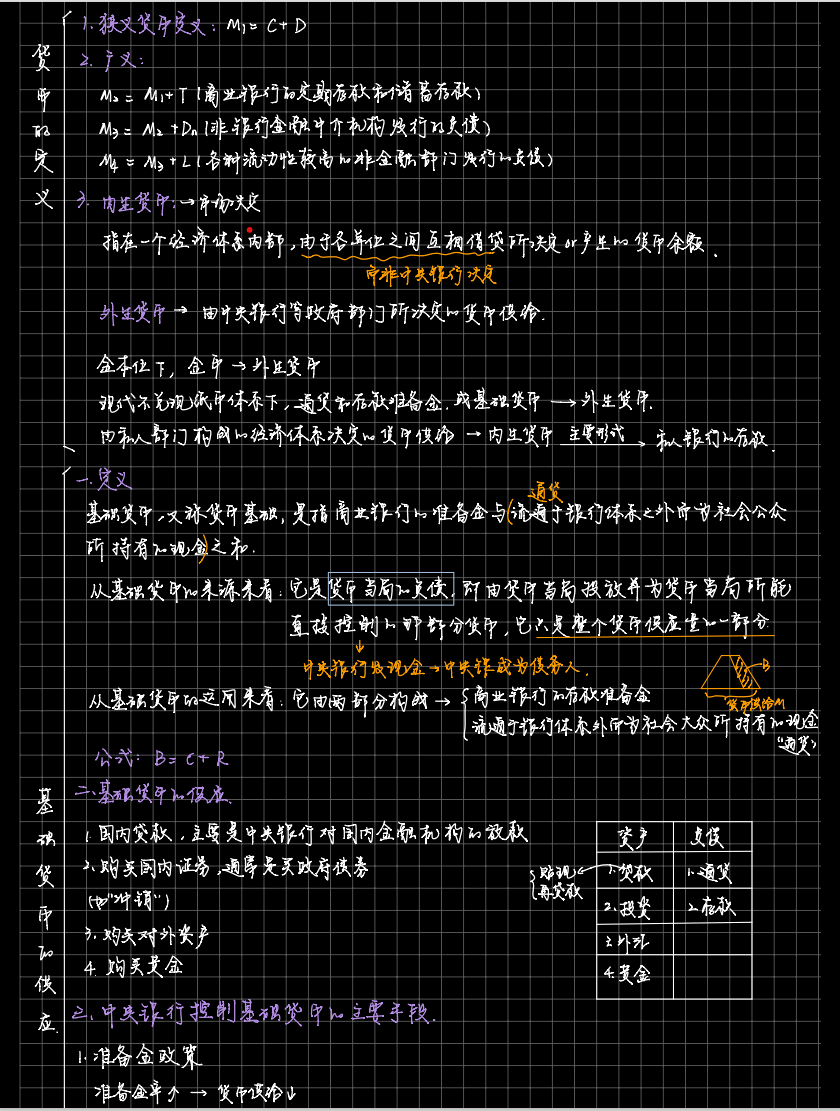 货币的定义
1.狭义货币定义：M₁=C+D
2.广义：
M₂=M₁+T(商业银行的定期存款和储蓄存款)
M₃=M₂+Dn(非银行金融中介机构发行的负债)
M₄=M₃+L(各种流动性较高的非金融部门发行的负债)
3.内生货币：→市场决定
指在一个经济体系内部，由于各单位之间互相借贷所决定or产生的货币余额.
而非中央银行决定
外生货币→由中央银行等政府部门所决定的货币供给.
金本位下，金币→外生货币
现代不兑现纸币体系下，通货和存款准备金.或基础货币→外生货币.
由私人部门构成的经济体系决定的货币供给→内生货币 主要形式→私人银行的存款.
基础货币的供应
一.定义
通货
基础货币，又称货币基础，是指商业银行的准备金与(流通于银行体系之外而为社会公众
所持有的现金)之和.
从基础货币的来源来看：它是货币当局的负债，即由货币当局投放并为货币当局所能
直接控制的那部分货币，它只是整个货币供应量的一部分
↓
中央银行发现金→中央银成为债务人.
B
货币供给M
从基础货币的运用来看：它由两部分构成→{商业银行的存款准备金
流通于银行体系外而为社会大众所持有的现金
"通货"
公式：B=C+R
二.基础货币的供应
1.国内贷款，主要是中央银行对国内金融机构的放款
2.购买国内证券，通常是买政府债券
(也"冲销")
3.购买对外资产
4.购买黄金
资产 负债
{贴现 再贷款 ←1.贷款 1.通货
2.投资 2.存款
3.外汇
4.黄金
三.中央银行控制基础货币的主要手段.
1.准备金政策
准备金率↑→货币供给↓